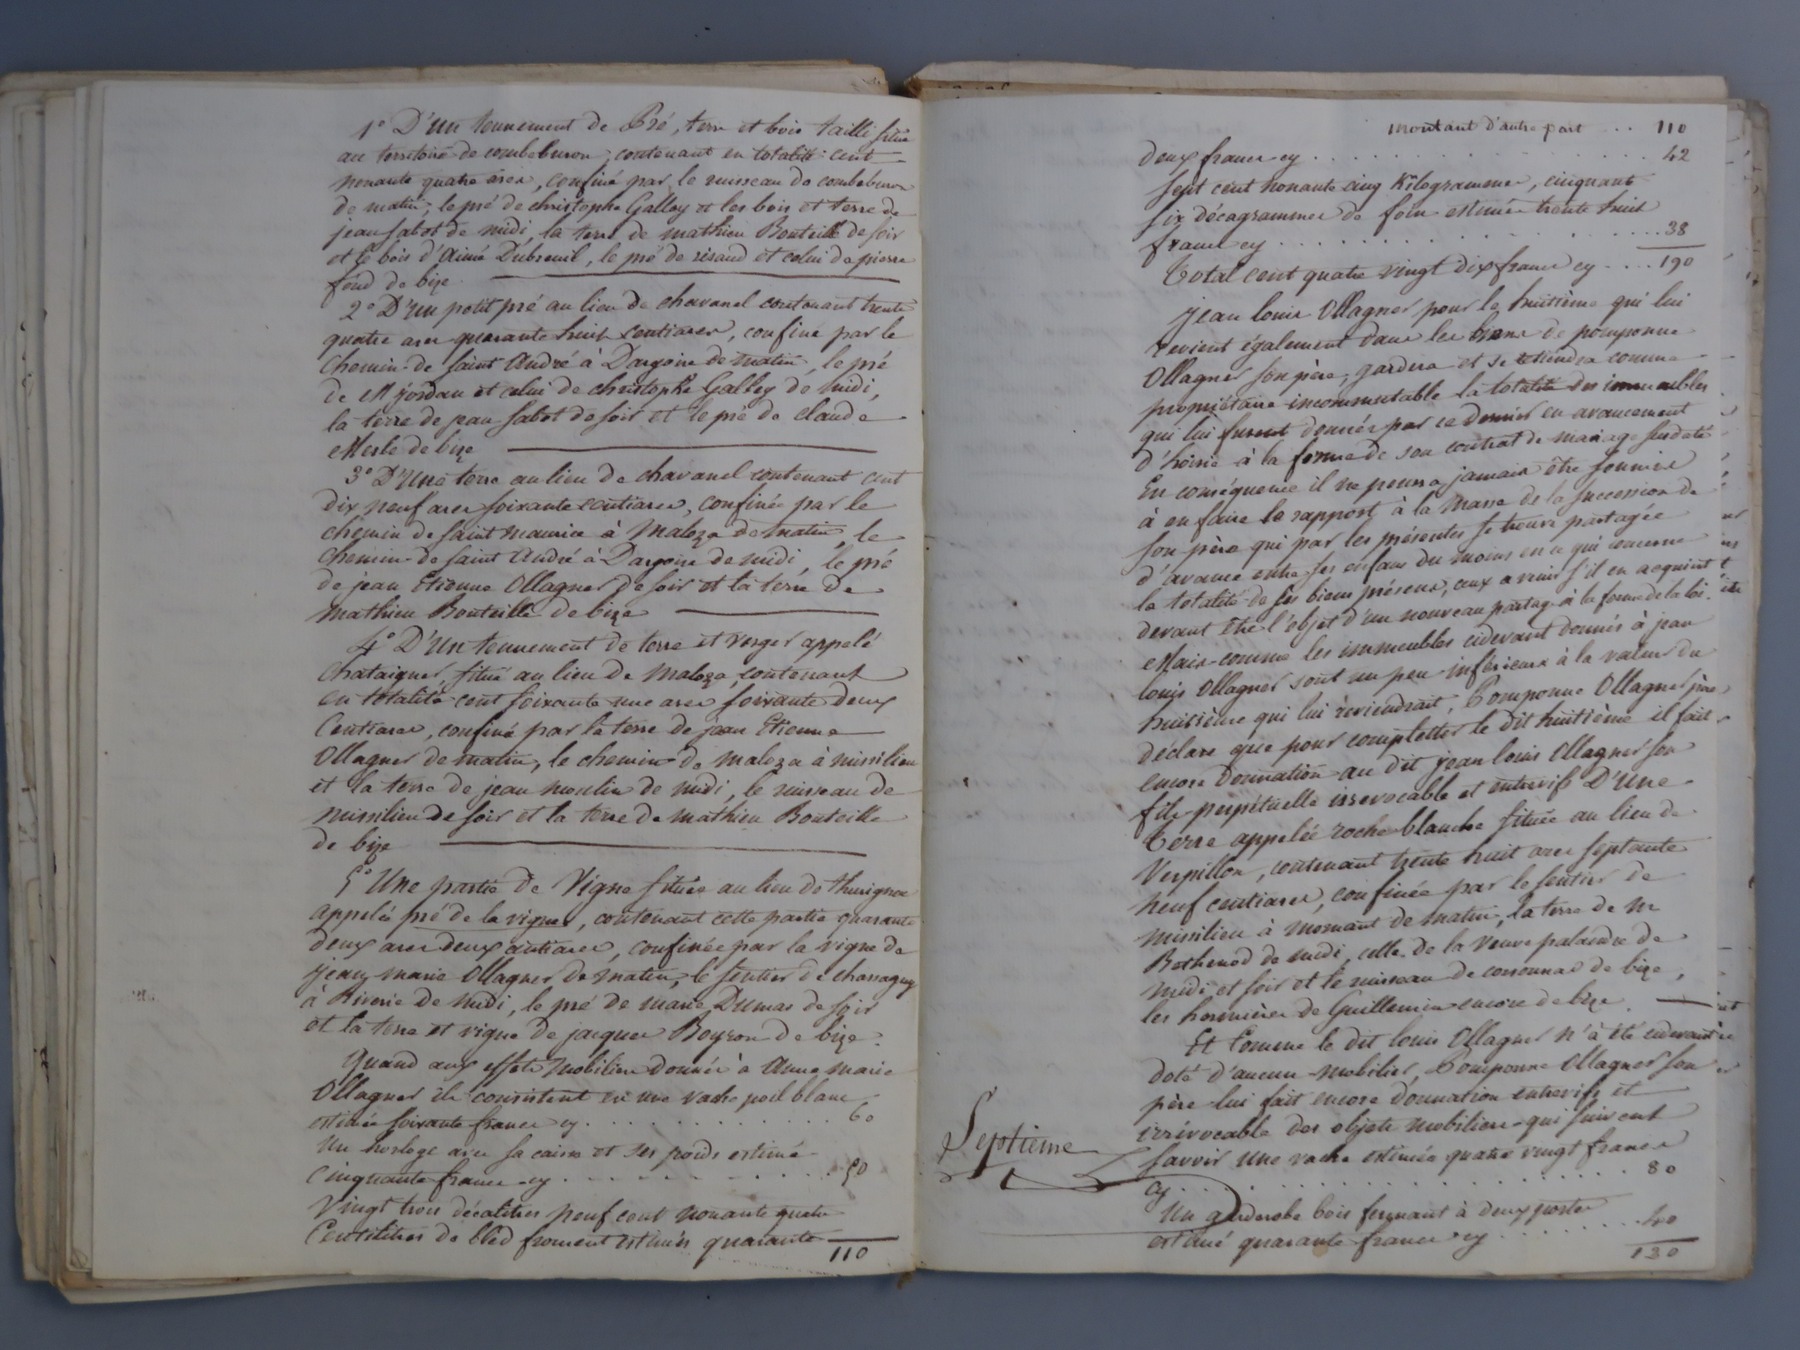 1° D'un tennement de Pré, terre et bois tailli situé
au territoire de combeburon, contenant en totalité cent
nonante quatre ares, confiné par le ruisseau de combeburon
de matin, le pré de christophe Galley et les bois et terre de
jean sabot de midi, la terre de mathieu Bouteille de soir
et le bois d'Aimé Dubreuil, le pré de risaud et celui de pierre
fond de bize
2° D'un petit pré au lieu de chavanel contenant trente
quatre ares quarante huit centiares, confiné par le
chemin de saint André à Dargoire de matin, le pré
de M jordan et celui de christophe Galley de midi,
la terre de jean sabot de soir et le pré de claude
Merle de bize
3° D'une terre au lieu de chavanel contenant cent
dix neuf ares soixante centiares, confinée par le
chemin de saint maurice à Maloza de matin, le
chemin de saint André à Dargoire de midi, le pré
de jean Etienne Ollagner de soir et la terre de
mathieu Bouteille de bize
4° D'un tennement de terre et verger appelé
chataigner, situé au lieu de Maloza, contenant
en totalité cent soixante une ares soixante deux
Centiares, confiné par la terre de jean Etienne
Ollagner de matin, le chemin de maloza à missilieu
et la terre de jean moulin de midi, le ruisseau de
missilieu de soir et la terre de mathieu Bouteille
de bize
5° Une partie de Vigne située au lieu de thurigneu
appelée pré de la vigne, contenant cette partie quarante
deux ares deux centiares, confinée par la vigne de
jean marie Ollagner de matin, le sentier de chassagny
à Riverie de midi, le pré de marie Dumas de soir
et la terre et vigne de jacques Boyron de bize.
Quand aux effets mobiliers donnés à Anne marie
Ollagner ils consistent en une vache poil blanc
estimée soixante francs cy . . . . . . . . . . . 60
Un horloge avec sa caisse et ses poids estimé
cinquante francs cy . . . . . . . . . . . 50
Vingt trois décalitres neuf cent nonante quatre
Centilitres de bled froment estimés quarante
110
Montant d'autre part . . . 110
deux francs cy . . . . . . . . . . . 42
sept cent nonante cinq Kilogrammes, cinquante
six décagrammes de foin estimés trente huit
francs cy . . . . . . . . . . . 38
Total cent quatre vingt dix francs cy . . . . 190
jean louis Ollagner pour le huitième qui lui
revient également dans les biens de pomponne
Ollagner son père, gardera et se retiendra comme
propriétaire incommutable la totalité des immeubles
qui lui furent donnés par ce dernier en avancement
d'hoirie à la forme de son contrat de mariage susdaté
En conséquence il ne pourra jamais être soumis
à en faire le rapport à la Masse de la succession de
son père qui par les présentes se trouve partagée
d'avance entre ses enfans du moins en ce qui concerne
la totalité de ses biens présens, ceux a venir s'il en acquiert
devant être l'objet d'un nouveau partage à la forme de la loi.
Mais comme les immeubles cidevant donnés à jean
louis Ollagner sont un peu inférieurs à la valeur du
huitième qui lui reviendrait, Pomponne Ollagner père
déclare que pour completter le dit huitième il fait
encore donnation au dit jean louis Ollagner son
fils perpétuelle irrevocable et entrevifs D'une
terre appelée roche blanche située au lieu de
Verpillon, contenant trente huit ares septante
neuf centiares, confinée par le sentier de
missilieu à mornant de matin, la terre de Mr
Bethenod de midi, celle de la veuve palandre de
midi et soir et le ruisseau de corsonnas de bize,
les hermières de Guillermin encore de bize.
Et Comme le dit louis Ollagner n'a été cidevant
doté d'aucun mobilier, Pomponne Ollagner son
père lui fait encore donnation entrevifs et
irrévocable des objets mobiliers qui suivent
Septième
savoir une vache estimée quatre vingt francs
cy . . . . . . . . . . . 80
Un garderobe bois fermant à deux portes
estimé quarante francs cy . . . . . . 40
120